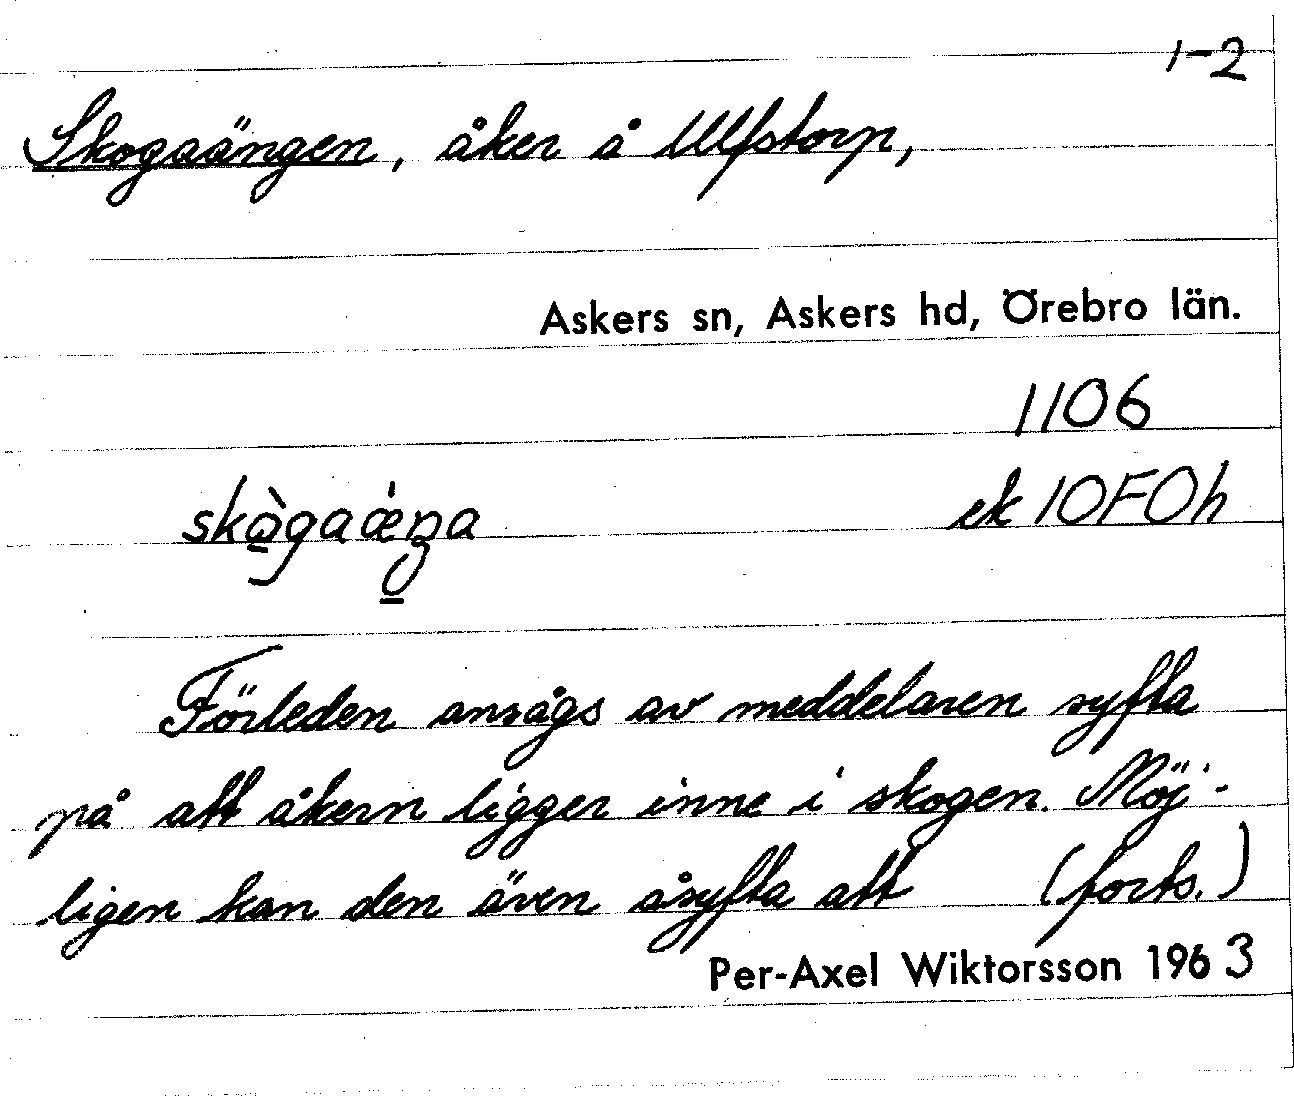 1-2
Skogaängen, åker å Ulfstorp,
Askers sn, Askers hd, Örebro län.
1106
skògaǽŋa ek 10F0h
Förleden ansågs av meddelaren syfta
på att åkern ligger inne i skogen. Möj-
ligen kan den även åsyfta att (forts.)
Per-Axel Wiktorsson 1963